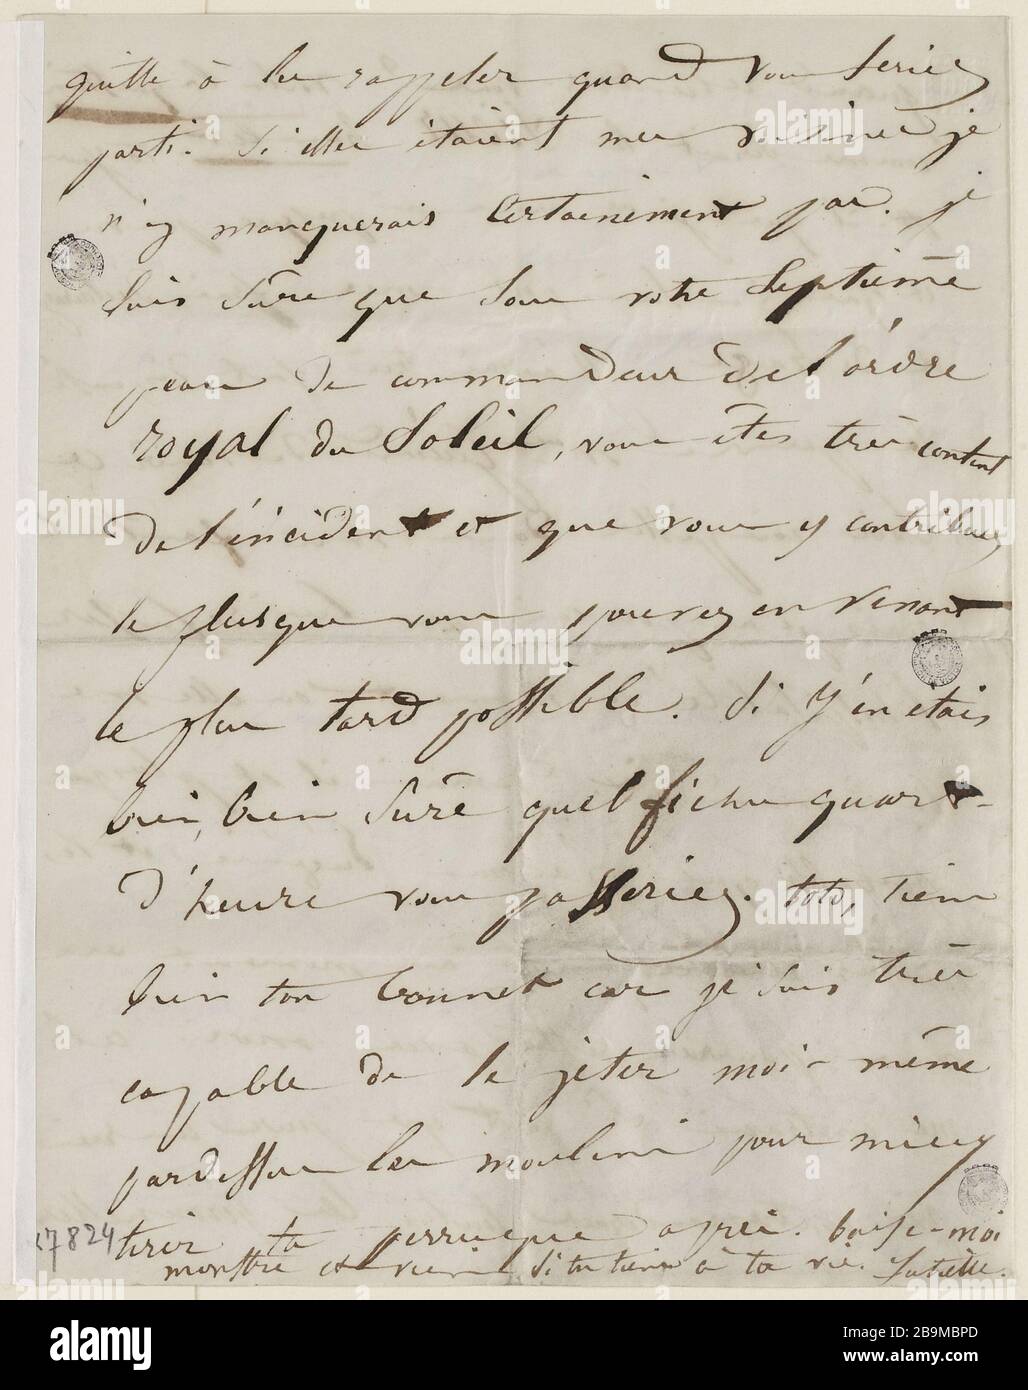 quitte à les rappeler quand vous seriez
parti. Si elles étaient mes voisines je
n'y manquerais certainement pas. je
suis sûre que sous votre septième
peau de commandeur de l'ordre
royal du Soleil, vous êtes très content
de l'incident et que vous y contribuez
le plus que vous pouvez en venant
le plus tard possible. Si j'en étais
bien, bien sûre quel fichu quart-
d'heure vous passeriez. toto, tiens
bien ton bonnet car je suis très
capable de le jeter moi-même
pardessus les moulins pour mieux
tirer ta perruque après. baise-moi
monstre et viens si tu tiens à ta vie. Juliette.
17824
alamy
Image ID: 2B9MBPD
www.alamy.com